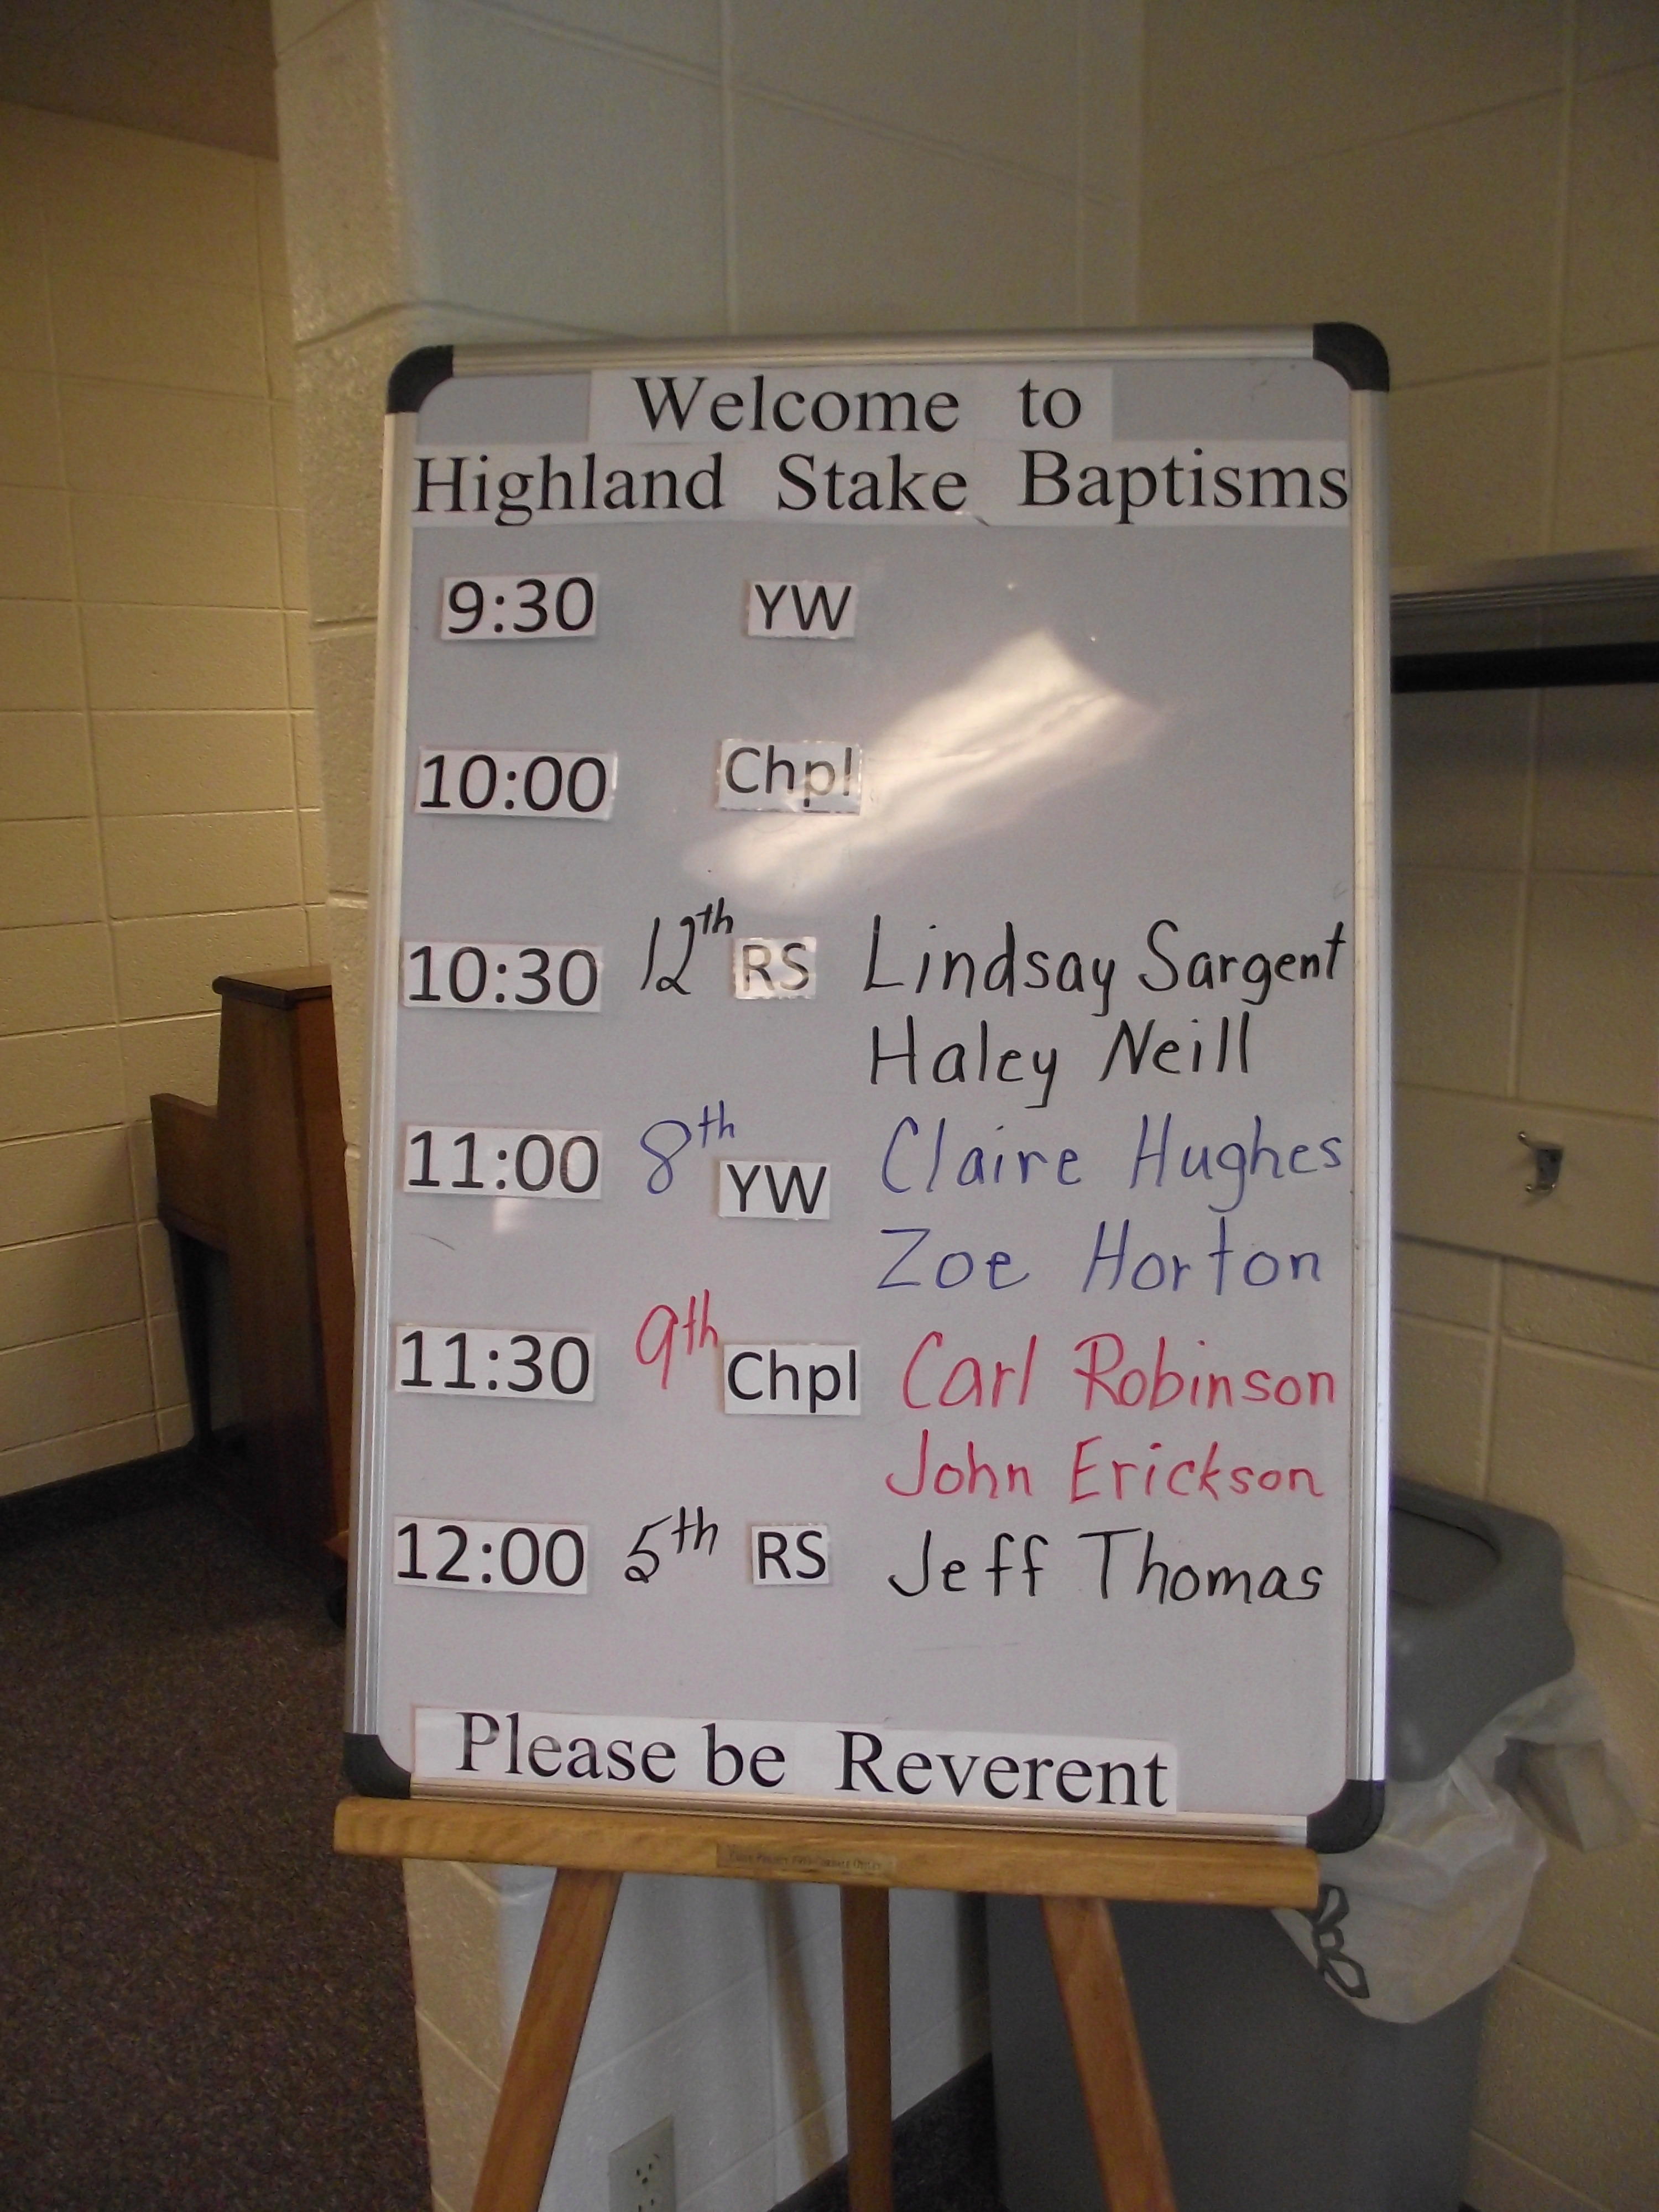 Welcome to
Highland Stake Baptisms
9:30 YW
10:00 Chpl
10:30 12th RS Lindsay Sargent
Haley Neill
11:00 8th YW Claire Hughes
Zoe Horton
11:30 9th Chpl Carl Robinson
John Erickson
12:00 5th RS Jeff Thomas
Please be Reverent